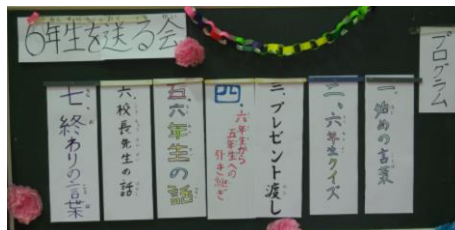 6年生を送る会
プログラム
一、始めの言葉
二、六年生クイズ
三、プレゼント渡し
四、六年生から
五年生への
引き継ぎ
五、六年生の話
六、校長先生の話
七、終わりの言葉